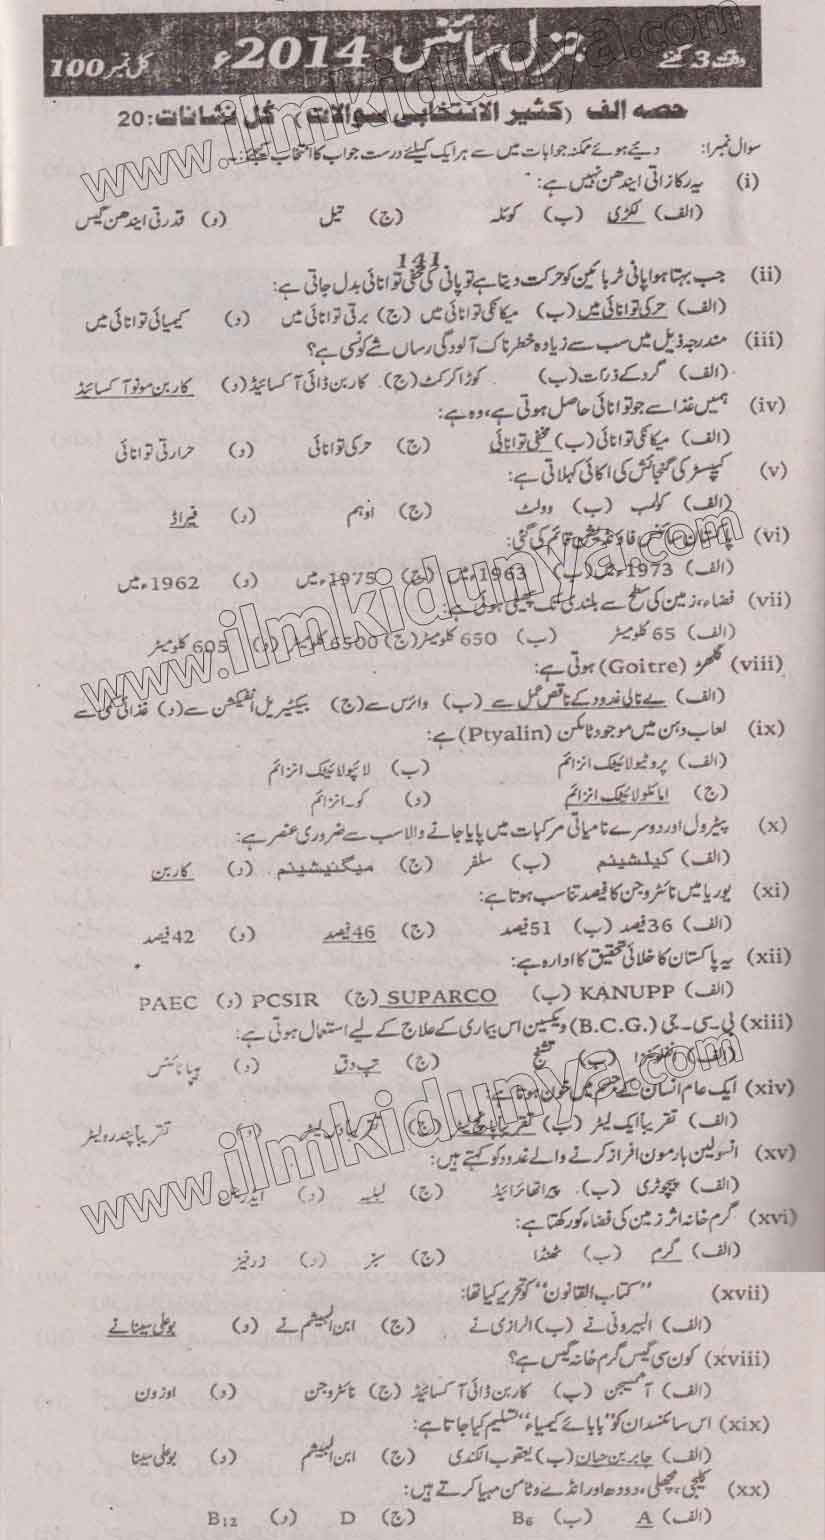 وقت 3 گھنٹے جنرل سائنس 2014ء کل نمبر 100
حصہ الف (کثیر الانتخابی سوالات) کل نشانات: 20
سوال نمبر1: دیئے ہوئے ممکنہ جوابات میں سے ہر ایک کیلئے درست جواب کا انتخاب کیجئے۔
(i) یہ رکازاتی ایندھن نہیں ہے:
(الف) لکڑی (ب) کوئلہ (ج) تیل (د) قدرتی ایندھن گیس
141
(ii) جب بہتا ہوا پانی ٹربائین کو حرکت دیتا ہے تو پانی کی مخفی توانائی بدل جاتی ہے:
(الف) حرکی توانائی میں (ب) میکانکی توانائی میں (ج) برقی توانائی میں (د) کیمیائی توانائی میں
(iii) مندرجہ ذیل میں سب سے زیادہ خطرناک آلودگی رساں شے کونسی ہے؟
(الف) گرد کے ذرات (ب) کوڑا کرکٹ (ج) کاربن ڈائی آکسائیڈ (د) کاربن مونو آکسائیڈ
(iv) ہمیں غذا سے جو توانائی حاصل ہوتی ہے، وہ ہے:
(الف) میکانکی توانائی (ب) مخفی توانائی (ج) حرکی توانائی (د) حرارتی توانائی
(v) کپیسٹر کی گنجائش کی اکائی کہلاتی ہے:
(الف) کولمب (ب) وولٹ (ج) اوہم (د) فیراڈ
(vi) پاکستان سائنس فاؤنڈیشن قائم کی گئی:
(الف) 1973ء میں (ب) 1963ء میں (ج) 1975ء میں (د) 1962ء میں
(vii) فضاء، زمین کی سطح سے بلندی تک پھیلی ہوئی ہے:
(الف) 65 کلومیٹر (ب) 650 کلومیٹر (ج) 6500 کلومیٹر (د) 605 کلومیٹر
(viii) گلھڑ (Goitre) ہوتی ہے:
(الف) بے نالی غدود کے ناقص عمل سے (ب) وائرس سے (ج) بیکٹیریل انفیکشن سے (د) غذائی کمی سے
(ix) لعاب دہن میں موجود ٹائلن (Ptyalin) ہے:
(الف) پروٹیولائیٹک انزائم (ب) لائپولائیٹک انزائم
(ج) امائلولائیٹک انزائم (د) کو۔انزائم
(x) پیٹرول اور دوسرے نامیاتی مرکبات میں پایا جانے والا سب سے ضروری عنصر ہے:
(الف) کیلشینم (ب) سلفر (ج) میگنیشینم (د) کاربن
(xi) یوریا میں نائٹروجن کا فیصد تناسب ہوتا ہے:
(الف) 36 فیصد (ب) 51 فیصد (ج) 46 فیصد (د) 42 فیصد
(xii) یہ پاکستان کا خلائی تحقیق کا ادارہ ہے:
(الف) KANUPP (ب) SUPARCO (ج) PCSIR (د) PAEC
(xiii) بی۔سی۔جی (B.C.G.) ویکسین اس بیماری کے علاج کے لیے استعمال ہوتی ہے:
(الف) انفلوئنزا (ب) تشنج (ج) تپ دق (د) ہیپاٹائٹس
(xiv) ایک عام انسان کے جسم میں خون ہوتا ہے:
(الف) تقریباً ایک لیٹر (ب) تقریباً پانچ لیٹر (ج) تقریباً دس لیٹر (د) تقریباً پندرہ لیٹر
(xv) انسولین ہارمون افراز کرنے والے غدود کو کہتے ہیں:
(الف) پیچوٹری (ب) پیراتھائرائیڈ (ج) لبلبہ (د) ایڈرینل
(xvi) گرم خانہ اثر زمین کی فضاء کو رکھتا ہے:
(الف) گرم (ب) ٹھنڈا (ج) سبز (د) زرخیز
(xvii) "کتاب القانون" کو تحریر کیا تھا:
(الف) البیرونی نے (ب) الرازی نے (ج) ابن الہیشم نے (د) بوعلی سینا نے
(xviii) کون سی گیس گرم خانہ گیس ہے؟
(الف) آکسیجن (ب) کاربن ڈائی آکسائیڈ (ج) نائٹروجن (د) اوزون
(xix) اس سائنسدان کو "بابائے کیمیاء" تسلیم کیا جاتا ہے:
(الف) جابر بن حیان (ب) یعقوب الکندی (ج) ابن الہیشم (د) بوعلی سینا
(xx) کلیجی، مچھلی، دودھ اور انڈے وٹامن مہیا کرتے ہیں:
(الف) A (ب) B6 (ج) D (د) B12
www.ilmkidunya.com
www.ilmkidunya.com
www.ilmkidunya.com